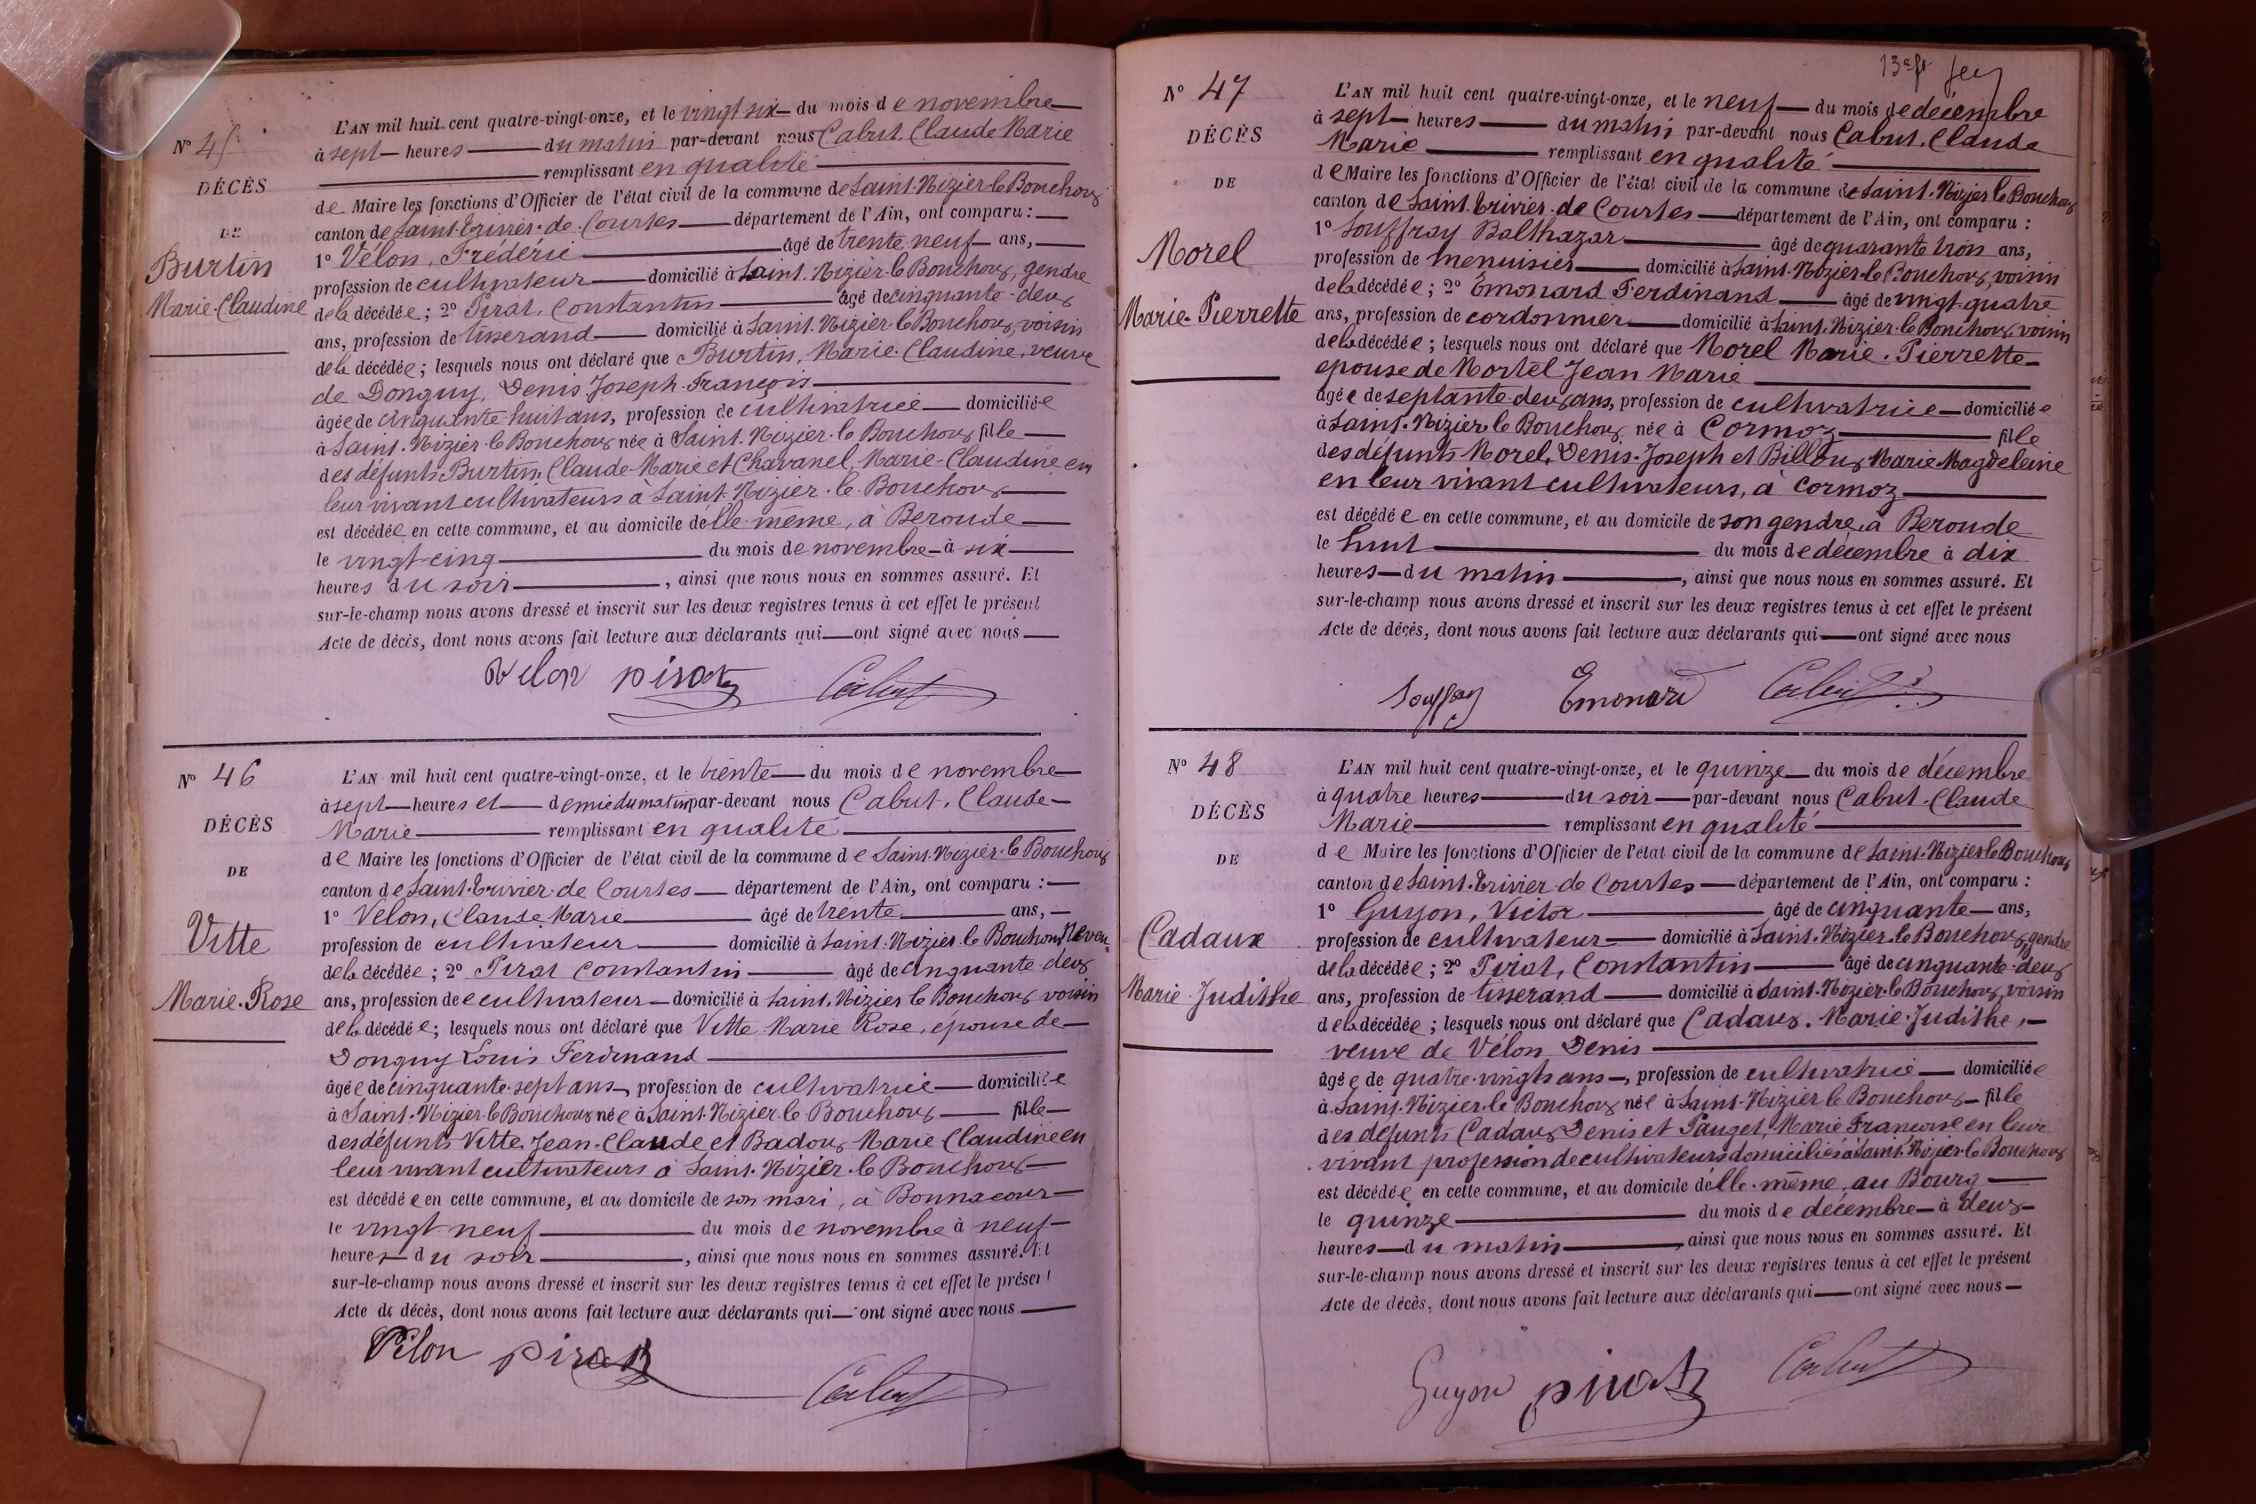 N° 45
DÉCÈS
DE
Burtin
Marie-Claudine
L'AN mil huit cent quatre-vingt-onze, et le vingt six du mois de novembre
à sept heures du matin par-devant nous Cabut, Claude Marie
remplissant en qualité
de Maire les fonctions d'Officier de l'état civil de la commune de Saint-Nizier-le-Bouchoux
canton de Saint-Trivier-de-Courtes département de l'Ain, ont comparu :
1° Vélon, Frédéric âgé de trente neuf ans,
profession de cultivateur domicilié à Saint-Nizier-le-Bouchoux, gendre
de la décédée ; 2° Pirat, Constantin âgé de cinquante-deux
ans, profession de tisserand domicilié à Saint-Nizier-le-Bouchoux, voisin
de la décédée ; lesquels nous ont déclaré que Burtin, Marie-Claudine, veuve
de Donguy, Denis Joseph-François
âgée de cinquante huit ans, profession de cultivatrice domiciliée
à Saint-Nizier-le-Bouchoux née à Saint-Nizier-le-Bouchoux fille
des défunts Burtin, Claude-Marie et Chavanel, Marie-Claudine en
leur vivant cultivateurs à Saint-Nizier-le-Bouchoux
est décédée en cette commune, et au domicile d'elle-même, à Beroude
le vingt-cinq du mois de novembre à six
heures du soir, ainsi que nous nous en sommes assuré. Et
sur-le-champ nous avons dressé et inscrit sur les deux registres tenus à cet effet le présent
Acte de décès, dont nous avons fait lecture aux déclarants qui ont signé avec nous
Velon pirat Cabut
N° 46
DÉCÈS
DE
Vitte
Marie-Rose
L'AN mil huit cent quatre-vingt-onze, et le trente du mois de novembre
à sept heures et demie du matin par-devant nous Cabut, Claude
Marie remplissant en qualité
de Maire les fonctions d'Officier de l'état civil de la commune de Saint-Nizier-le-Bouchoux
canton de Saint-Trivier-de-Courtes département de l'Ain, ont comparu :
1° Vélon, Claude Marie âgé de trente ans,
profession de cultivateur domicilié à Saint-Nizier-le-Bouchoux, Neveu
de la décédée ; 2° Pirat Constantin âgé de cinquante deux
ans, profession de cultivateur domicilié à Saint-Nizier le Bouchoux voisin
de la décédée ; lesquels nous ont déclaré que Vitte Marie Rose, épouse de
Donguy Louis Ferdinand
âgée de cinquante-sept ans, profession de cultivatrice domiciliée
à Saint-Nizier-le-Bouchoux née à Saint-Nizier-le-Bouchoux fille
des défunts Vitte Jean-Claude et Badoux Marie Claudine en
leur vivant cultivateurs à Saint-Nizier-le-Bouchoux
est décédée en cette commune, et au domicile de son mari, à Bonnacour
le vingt neuf du mois de novembre à neuf
heures du soir, ainsi que nous nous en sommes assuré. Et
sur-le-champ nous avons dressé et inscrit sur les deux registres tenus à cet effet le présent
Acte de décès, dont nous avons fait lecture aux déclarants qui ont signé avec nous
Vélon pirat
Cabut
N° 47
DÉCÈS
DE
Morel
Marie-Pierrette
L'AN mil huit cent quatre-vingt-onze, et le neuf du mois de décembre
à sept heures du matin par-devant nous Cabut, Claude
Marie remplissant en qualité
de Maire les fonctions d'Officier de l'état civil de la commune de Saint-Nizier le Bouchoux
canton de Saint-Trivier-de-Courtes département de l'Ain, ont comparu :
1° Souffray Balthazar âgé de quarante trois ans,
profession de menuisier domicilié à Saint-Nizier-le-Bouchoux, voisin
de la décédée ; 2° Émonard Ferdinand âgé de vingt-quatre
ans, profession de cordonnier domicilié à Saint-Nizier-le-Bouchoux, voisin
de la décédée ; lesquels nous ont déclaré que Morel Marie-Pierrette
épouse de Mortel Jean Marie
âgée de septante-deux ans, profession de cultivatrice domiciliée
à Saint-Nizier-le Bouchoux, née à Cormoz fille
des défunts Morel, Denis-Joseph et Billoux Marie Magdeleine
en leur vivant cultivateurs, à Cormoz
est décédée en cette commune, et au domicile de son gendre, à Beroude
le huit du mois de décembre à dix
heures du matin, ainsi que nous nous en sommes assuré. Et
sur-le-champ nous avons dressé et inscrit sur les deux registres tenus à cet effet le présent
Acte de décès, dont nous avons fait lecture aux déclarants qui ont signé avec nous
Souffray Emonard Cabut
N° 48
DÉCÈS
DE
Cadaux
Marie-Judithe
L'AN mil huit cent quatre-vingt-onze, et le quinze du mois de décembre
à quatre heures du soir par-devant nous Cabut-Claude
Marie remplissant en qualité
de Maire les fonctions d'Officier de l'état civil de la commune de Saint-Nizier le Bouchoux
canton de Saint-Trivier-de-Courtes département de l'Ain, ont comparu :
1° Guyon, Victor âgé de cinquante ans,
profession de cultivateur domicilié à Saint-Nizier-le-Bouchoux, gendre
de la décédée ; 2° Pirat, Constantin âgé de cinquante-deux
ans, profession de tisserand domicilié à Saint-Nizier-le-Bouchoux, voisin
de la décédée ; lesquels nous ont déclaré que Cadaux, Marie-Judithe,
veuve de Vélon Denis
âgée de quatre-vingts ans, profession de cultivatrice domiciliée
à Saint-Nizier-le Bouchoux née à Saint-Nizier le Bouchoux fille
des défunts Cadaux Denis et Pauget, Marie Françoise en leur
vivant profession de cultivateurs domiciliés à Saint-Nizier-le-Bouchoux
est décédée en cette commune, et au domicile d'elle-même, au Bourg
le quinze du mois de décembre à deux
heures du matin, ainsi que nous nous en sommes assuré. Et
sur-le-champ nous avons dressé et inscrit sur les deux registres tenus à cet effet le présent
Acte de décès, dont nous avons fait lecture aux déclarants qui ont signé avec nous
Guyon pirat Cabut